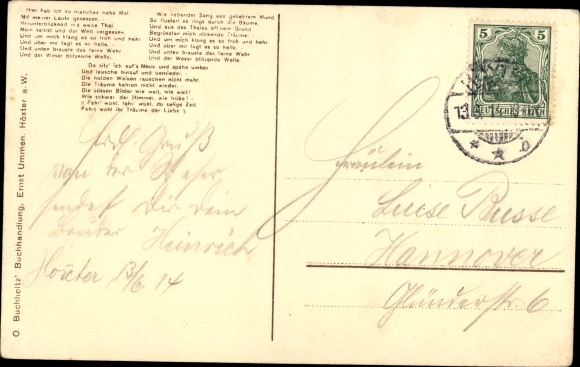 Hier hab' ich so manches liebe Mal
Mit meiner Laute gesessen,
Hinunterblickend ins weite Thal
Mein selbst und der Welt vergessen.
Und um mich klang es so froh und hehr
Und über mir tagt es so helle,
Und unten brauste das ferne Wehr
Und der Weser blitzende Welle.
Wie liebender Sang aus geliebtem Mund
So flüstert es rings durch die Bäume,
Und aus des Thales off'nem Grund
Begrüssten mich nickende Träume.
Und um mich klang es so froh und hehr
Und über mir tagt es so helle,
Und unten brauste das ferne Wehr
Und der Weser blitzende Welle.
Da sitz' ich auf's Neue und spähe umher
Und lausche hinauf und hernieder.
Die holden Weisen rauschen nicht mehr,
Die Träume kehren nicht wieder.
Die süssen Bilder wie weit, wie weit!
Wie schwer der Himmel, wie trübe!
Fahr' wohl, fahr' wohl, du selige Zeit,
Fahrt wohl ihr Träume der Liebe!
O. Buchholtz' Buchhandlung, Ernst Ummen, Höxter a. W.
5 5
DEUTSCHES REICH
Herzl. Gruß
von der Weser
sendet Dir dein
Bruder Heinrich
Höxter 13/6. 14
Fräulein
Luise Busse
Hannover